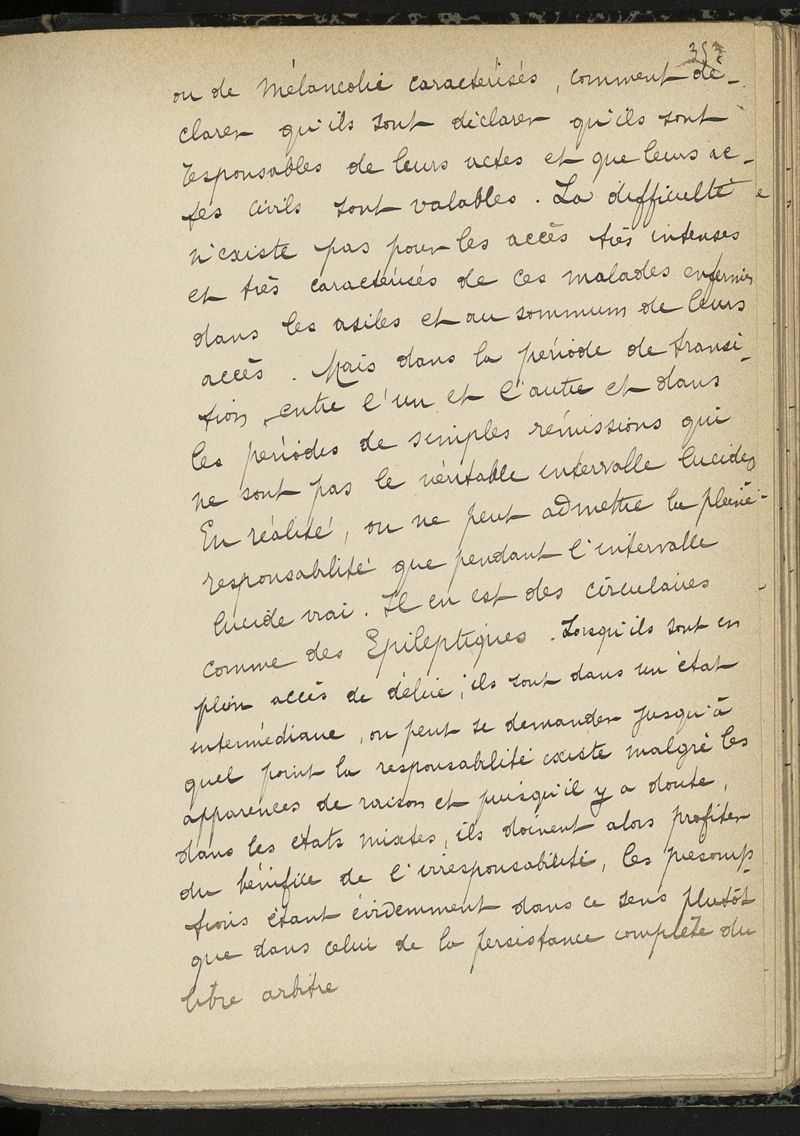 353
ou de Mélancolie caractérisés, comment dé-
clarer qu'ils sont déclarer qu'ils sont
responsables de leurs actes et que leurs ac-
tes civils sont valables. La difficulté
n'existe pas pour les accès très intenses
et très caractérisés de ces malades enfermés
dans les asiles et au summum de leurs
accès. Mais dans la période de transi-
tion, entre l'un et l'autre et dans
les périodes de simples rémissions qui
ne sont pas le véritable intervalle lucide,
En réalité, on ne peut admettre la pleine
responsabilité que pendant l'intervalle
lucide vrai. Il en est des circulaires
comme des Epileptiques. Lorsqu'ils sont en
plein accès de délire, ils sont dans un état
intermédiaire, on peut se demander jusqu'à
quel point la responsabilité existe malgré les
apparences de raison et puisqu'il y a doute,
dans les états mixtes, ils doivent alors profiter
du bénéfice de l'irresponsabilité, les présomp-
tions étant évidemment dans ce sens plutôt
que dans celui de la persistance complète du
libre arbitre